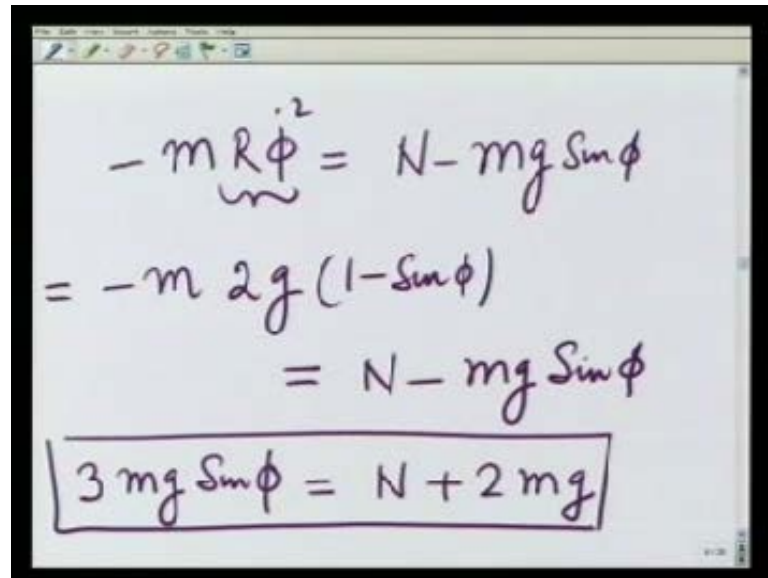 File Edit View Insert Actions Tools Help
- m R φ̇² = N - mg Sin φ
= - m 2g (1 - Sin φ)
= N - mg Sin φ
3 mg Sin φ = N + 2 mg